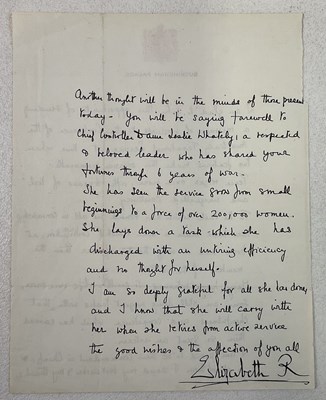 Another thought will be in the minds of those present
today - You will be saying farewell to
Chief Controller Dame Leslie Whateley, a respected
& beloved leader who has shared your
fortunes through 6 years of war.
She has seen the service grow from small
beginnings to a force of over 200,000 women.
She lays down a task which she has
discharged with an untiring efficiency
and no thought for herself.
I am so deeply grateful for all she has done,
and I know that she will carry with
her when she retires from active service
the good wishes & the affection of you all
Elizabeth R